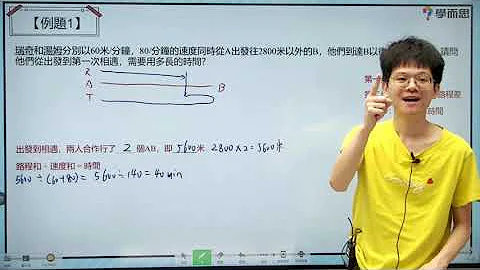 【例題1】
學而思
瑞奇和湯姆分別以60米/分鐘，80/分鐘的速度同時從A出發往2800米以外的B，他們到達B以後
請問
他們從出發到第一次相遇，需要用多長的時間?
R
A
B
T
第一
路程差
時間
出發到相遇，兩人合作行了 2 個AB，即 5600米 2800×2=5600米
路程和÷速度和=時間
5600÷(60+80)= 5600÷140=40min